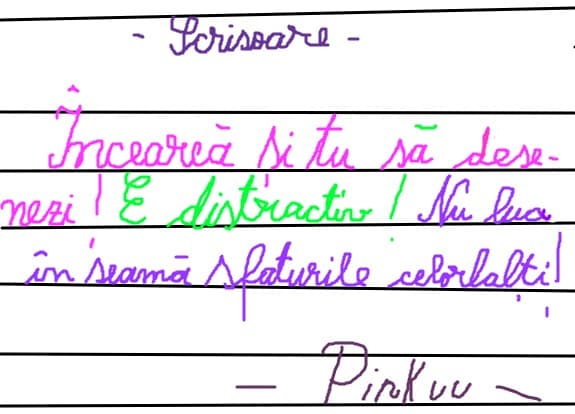 - Scrisoare -
Încearcă si tu să dese-
nezi! E distractiv! Nu lua
în seamă sfaturile celorlalți!
- Pinkuu -